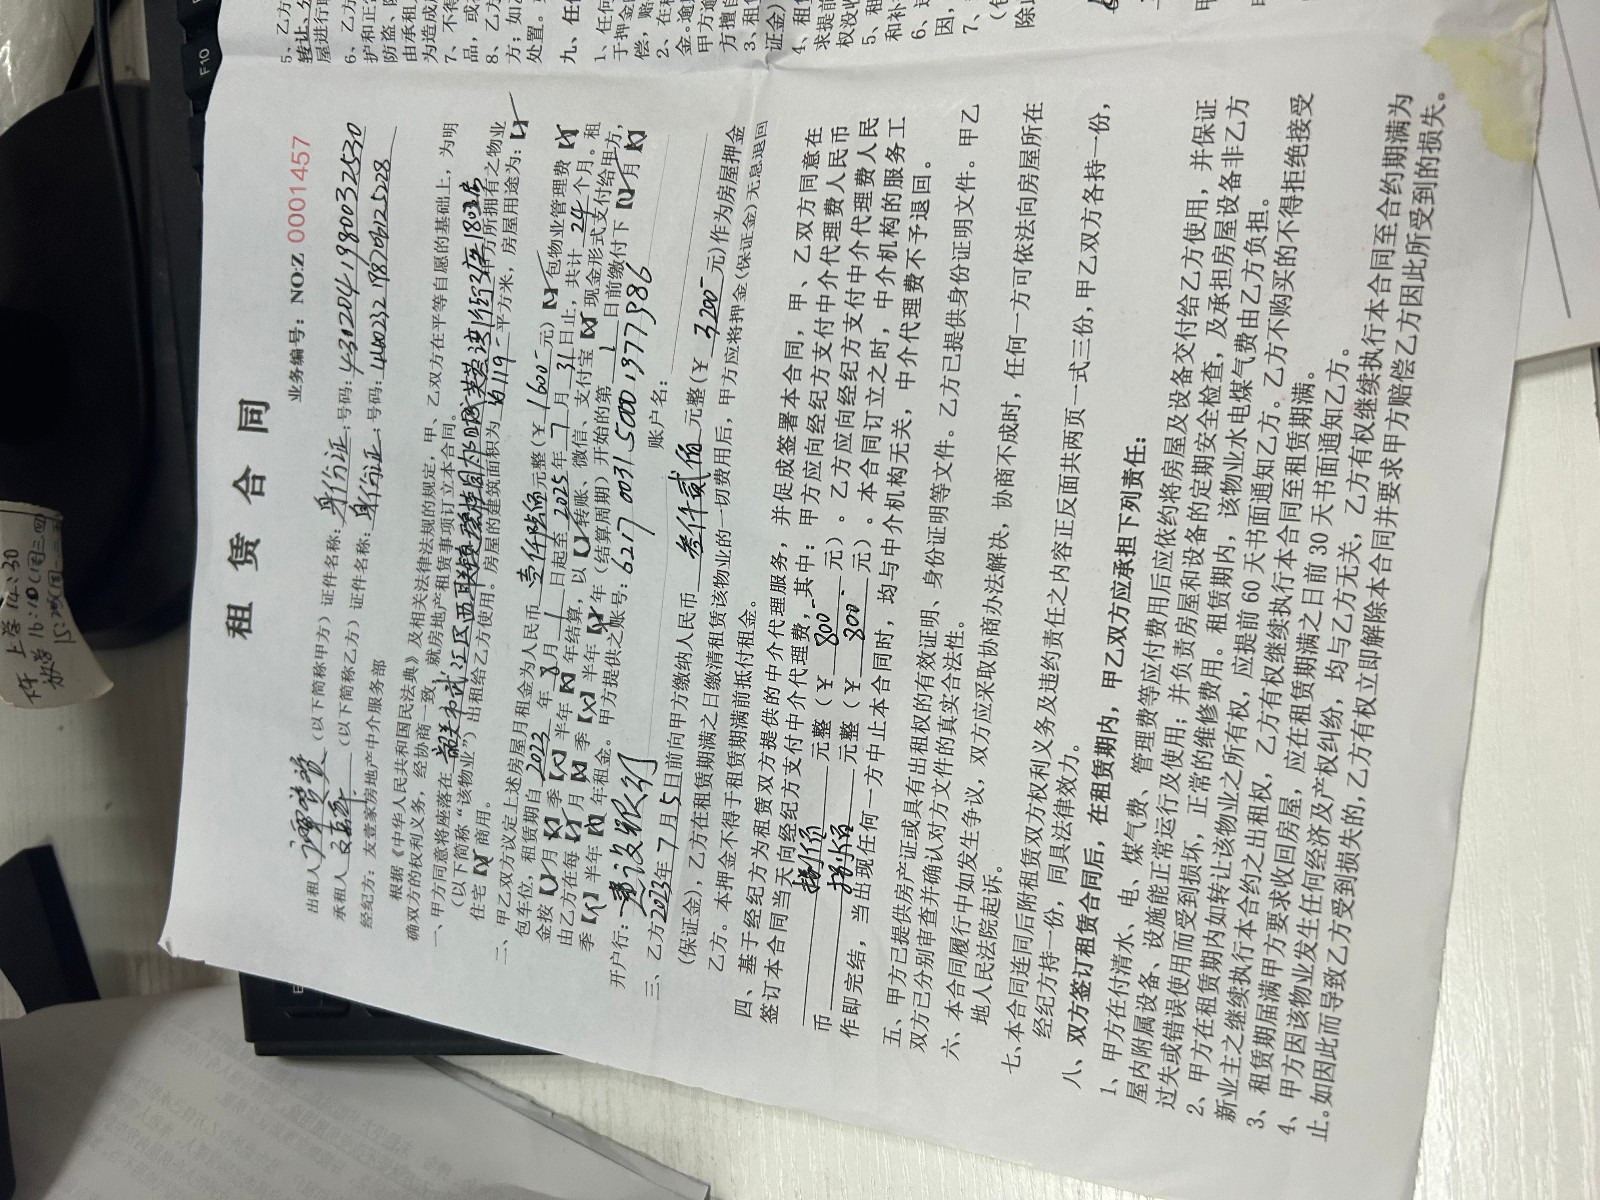 租赁合同
业务编号：NO:Z 0001457
出租人（以下简称甲方）证件名称：身份证；号码：
承租人（以下简称乙方）证件名称：身份证；号码：
经纪方：友壹家房地产中介服务部
根据《中华人民共和国民法典》及相关法律法规的规定，甲、乙双方在平等自愿的基础上，为明
确双方的权利义务，经协商一致，就房地产租赁事项订立本合同。
一、甲方同意将座落在
（以下简称“该物业”）出租给乙方使用。房屋的建筑面积为 平方米，房屋用途为：
住宅 商用。
二、甲乙双方议定上述房屋月租金为人民币 壹仟陆佰 元整（￥1600元） 包物业管理费
包车位，租赁期自2023年8月1日起至2025年7月31日止，共计24个月。租
金按 月 季 半年 年结算，以 转账、微信、支付宝 现金形式支付给甲方，
由乙方在每 月 季 半年 年（结算周期）开始的第1日前缴付下 月
季 半年 年租金。甲方提供之账号：6217 0031 5000 1977986
开户行：建设银行 账户名：
三、乙方2023年7月5日前向甲方缴纳人民币 叁仟贰佰 元整（￥3200元）作为房屋押金
（保证金），乙方在租赁期满之日缴清租赁该物业的一切费用后，甲方应将押金（保证金）无息退回
乙方。本押金不得于租赁期满前抵付租金。
四、基于经纪方为租赁双方提供的中介代理服务，并促成签署本合同，甲、乙双方同意在
签订本合同当天向经纪方支付中介代理费，其中：甲方应向经纪方支付中介代理费人民币
捌佰 元整（￥800元）。乙方应向经纪方支付中介代理费人民
币 捌佰 元整（￥800元）。本合同订立之时，中介机构的服务工
作即完结，当出现任何一方中止本合同时，均与中介机构无关，中介代理费不予退回。
五、甲方已提供房产证或具有出租权的有效证明、身份证明等文件。乙方已提供身份证明文件。甲乙
双方已分别审查并确认对方文件的真实合法性。
六、本合同履行中如发生争议，双方应采取协商办法解决，协商不成时，任何一方可依法向房屋所在
地人民法院起诉。
七、本合同连同后附租赁双方权利义务及违约责任之内容正反面共两页一式三份，甲乙双方各持一份，
经纪方持一份，同具法律效力。
八、双方签订租赁合同后，在租赁期内，甲乙双方应承担下列责任：
1、甲方在付清水、电、煤气费、管理费等应付费用后应依约将房屋及设备交付给乙方使用，并保证
屋内附属设备、设施能正常运行及使用；并负责房屋和设备的定期安全检查，及承担房屋设备非乙方
过失或错误使用而受到损坏，正常的维修费用。租赁期内，该物业水电煤气费由乙方负担。
2、甲方在租赁期内如转让该物业之所有权，应提前60天书面通知乙方。乙方不购买的不得拒绝接受
新业主之继续执行本合约之出租权，乙方有权继续执行本合同至租赁期满。
3、租赁期届满甲方要求收回房屋，应在租赁期满之日前30天书面通知乙方。
4、甲方因该物业发生任何经济及产权纠纷，均与乙方无关，乙方有权继续执行本合同至合约期满为
止。如因此而导致乙方受到损失的，乙方有权立即解除本合同并要求甲方赔偿乙方因此所受到的损失。
F10